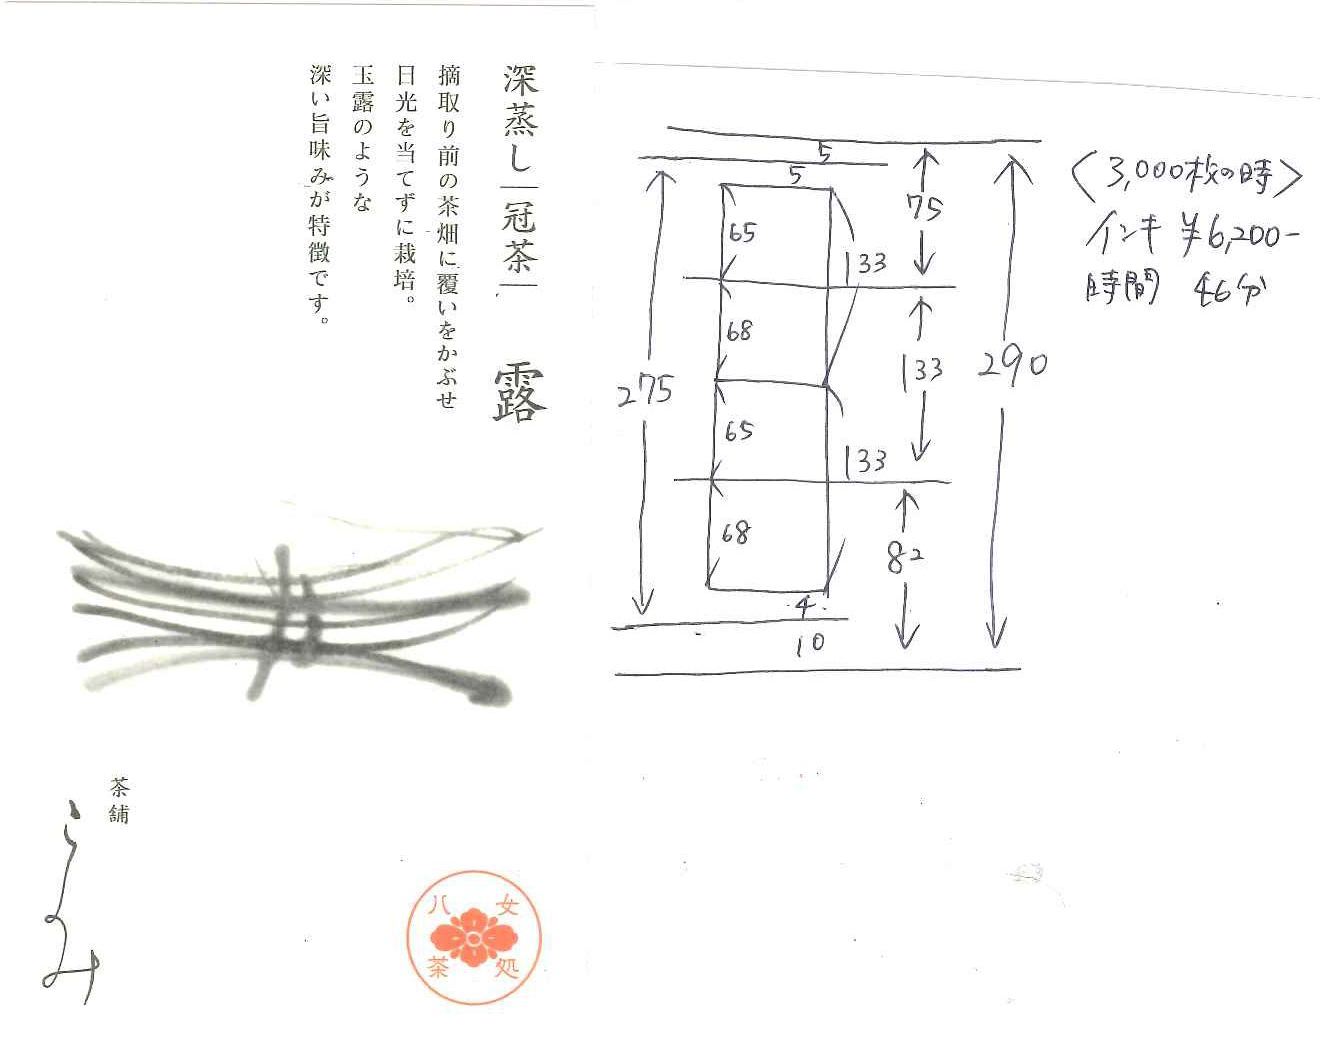 深蒸し｜冠茶｜ 露
摘取り前の茶畑に覆いをかぶせ
日光を当てずに栽培。
玉露のような
深い旨味みが特徴です。
茶舗
らみ
八女
茶処
5
5
65
133
75
68
275
133
290
65
133
68
82
4
10
〈3,000枚の時〉
インキ ¥6,200-
時間 46分